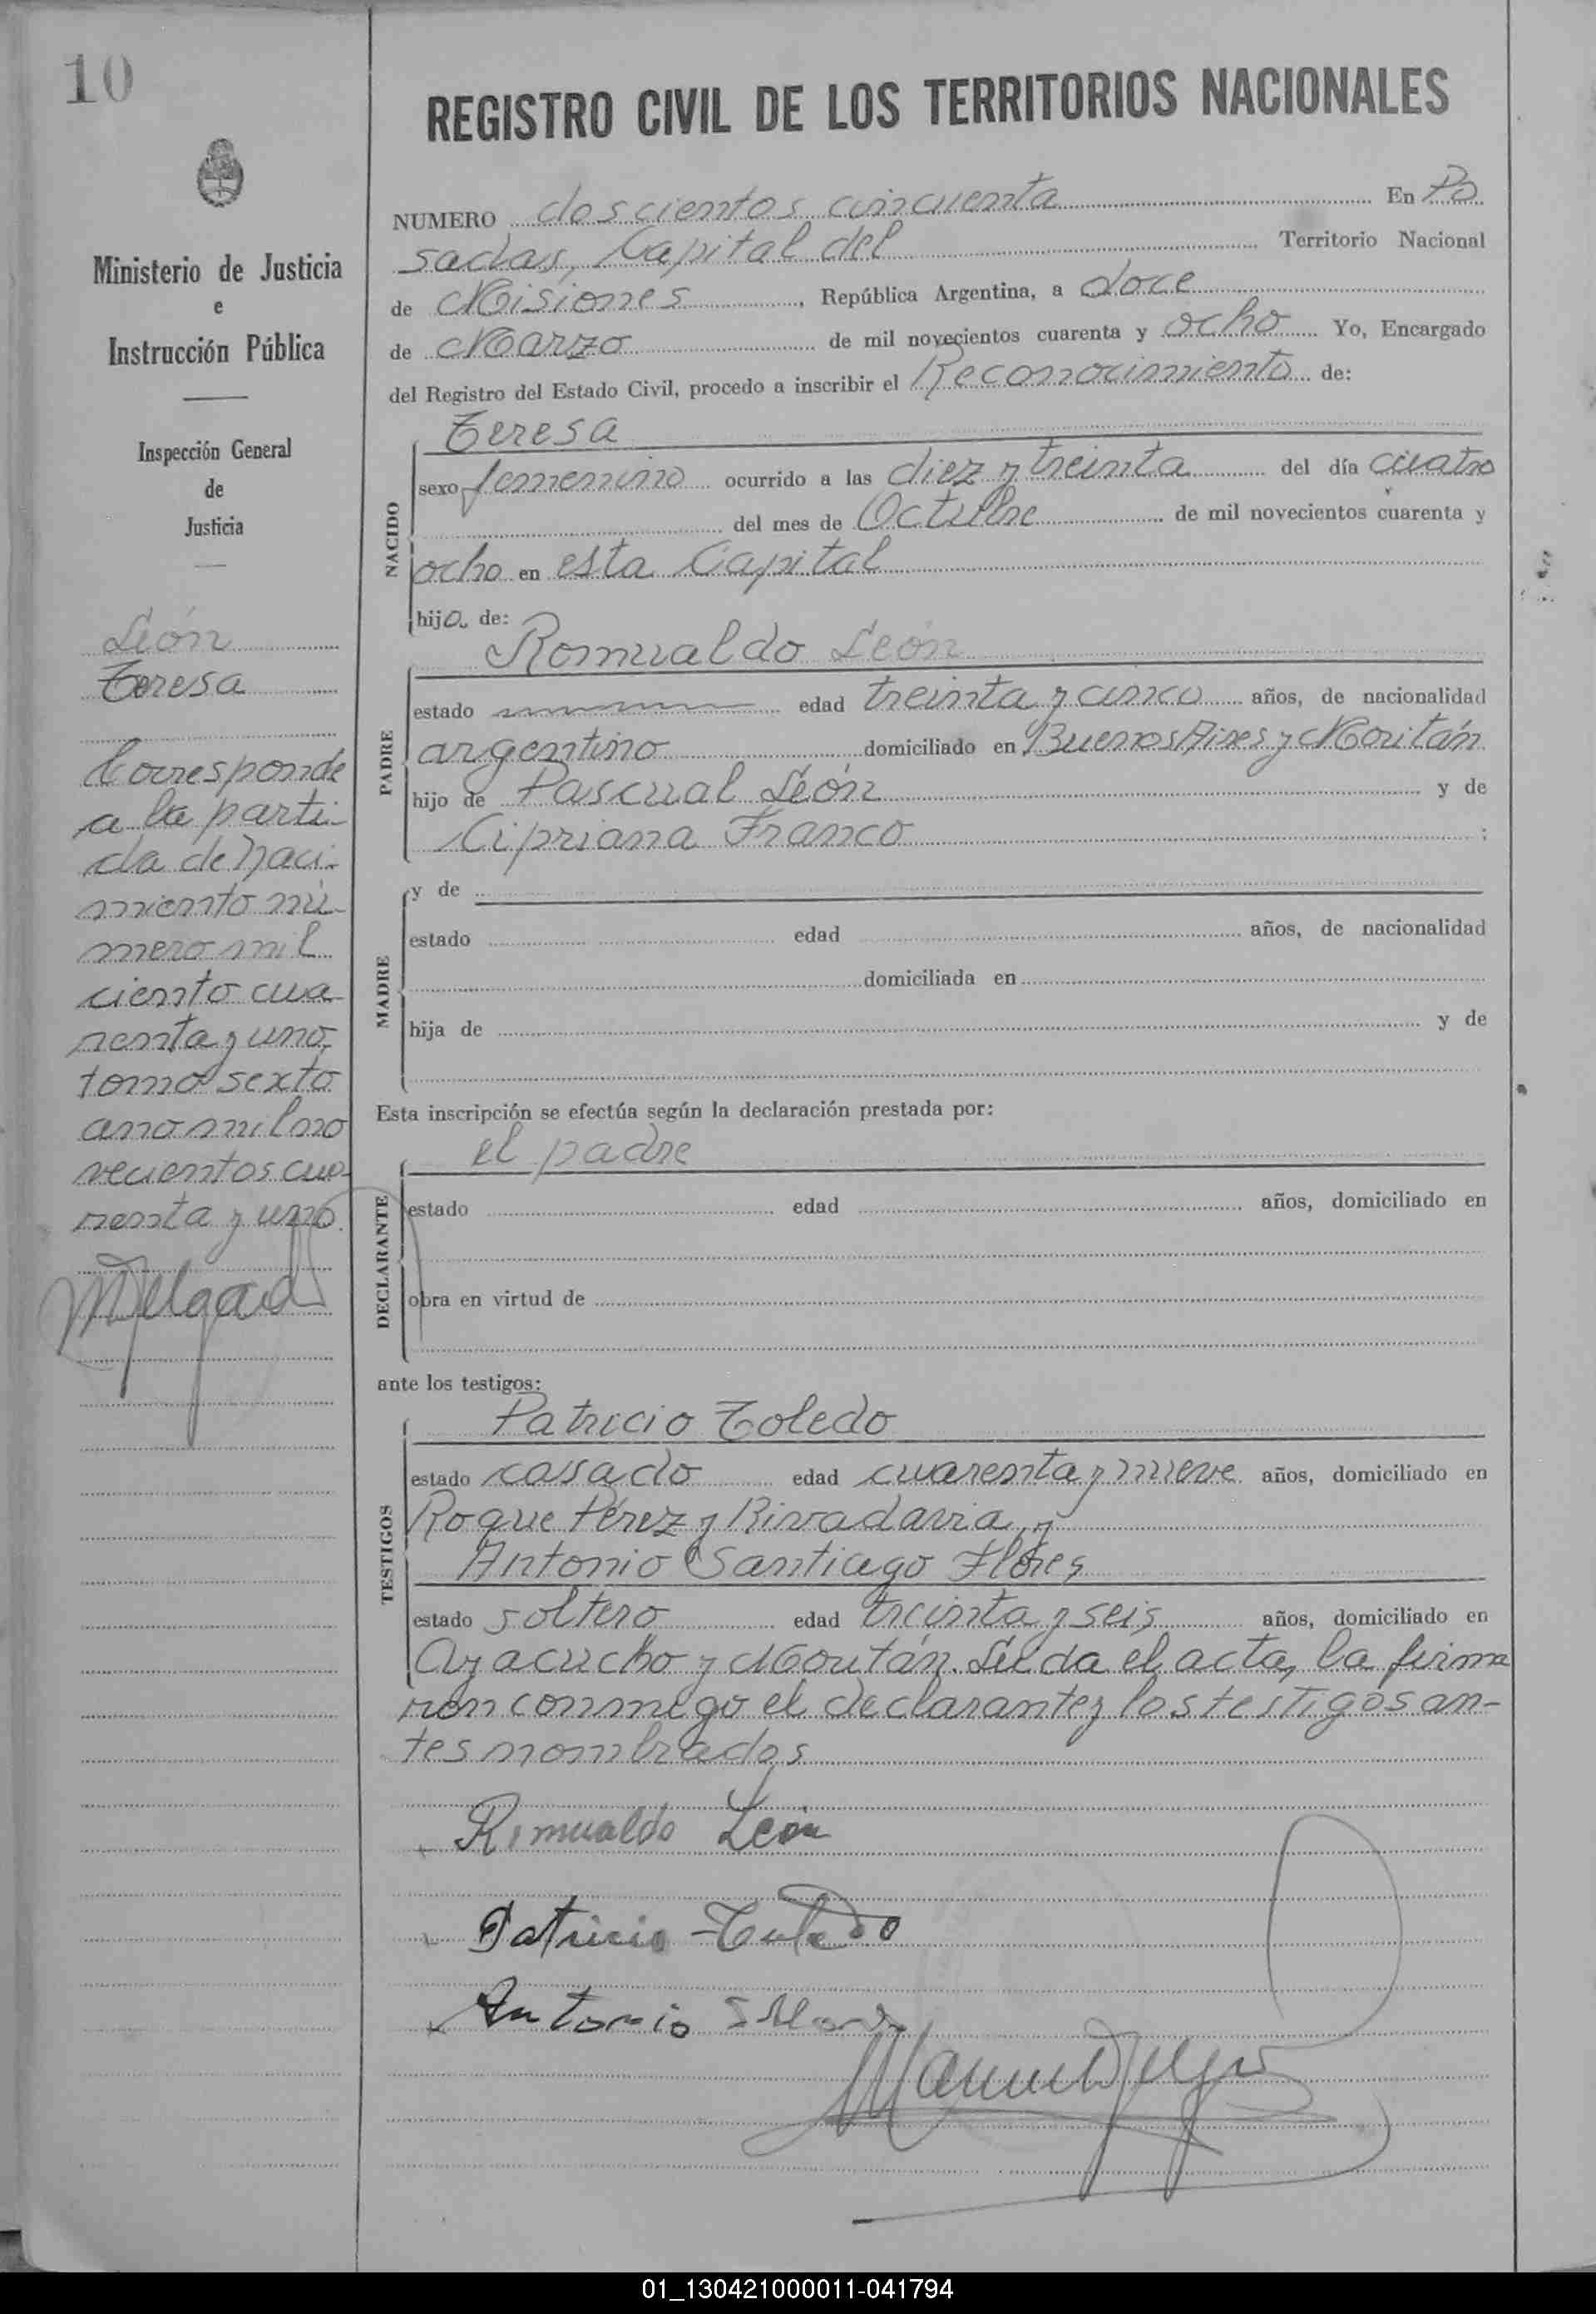 10
REGISTRO CIVIL DE LOS TERRITORIOS NACIONALES
Ministerio de Justicia
e
Instrucción Pública
Inspección General
de
Justicia
León
Teresa
Corresponde
a la parti-
da de naci-
miento nú-
mero mil
ciento cua
renta y uno,
tomo sexto
año mil no
vecientos cua-
renta y uno.
NUMERO doscientos cincuenta En Po
sadas, Capital del Territorio Nacional
de Misiones, República Argentina, a doce
de Marzo de mil novecientos cuarenta y ocho Yo, Encargado
del Registro del Estado Civil, procedo a inscribir el Reconocimiento de:
NACIDO
Teresa
sexo femenino ocurrido a las diez y treinta del día cuatro
del mes de Octubre de mil novecientos cuarenta y
ocho en esta Capital
hija de:
PADRE
Romualdo León
estado edad treinta y cinco años, de nacionalidad
argentino domiciliado en Buenos Aires y Moritán
hijo de Pascual León y de
Cipriana Franco ;
MADRE
y de
estado edad años, de nacionalidad
domiciliada en
hija de y de
Esta inscripción se efectúa según la declaración prestada por:
DECLARANTE
el padre
estado edad años, domiciliado en
obra en virtud de
ante los testigos:
TESTIGOS
Patricio Toledo
estado casado edad cuarenta y nueve años, domiciliado en
Roque Pérez y Rivadavia, y
Antonio Santiago Flores
estado soltero edad treinta y seis años, domiciliado en
Ayacucho y Moritán. Leída el acta, la firma
ron conmigo el declarante y los testigos an-
tes nombrados
Romualdo León
Patricio Toledo
Antonio S Flores
01_130421000011-041794